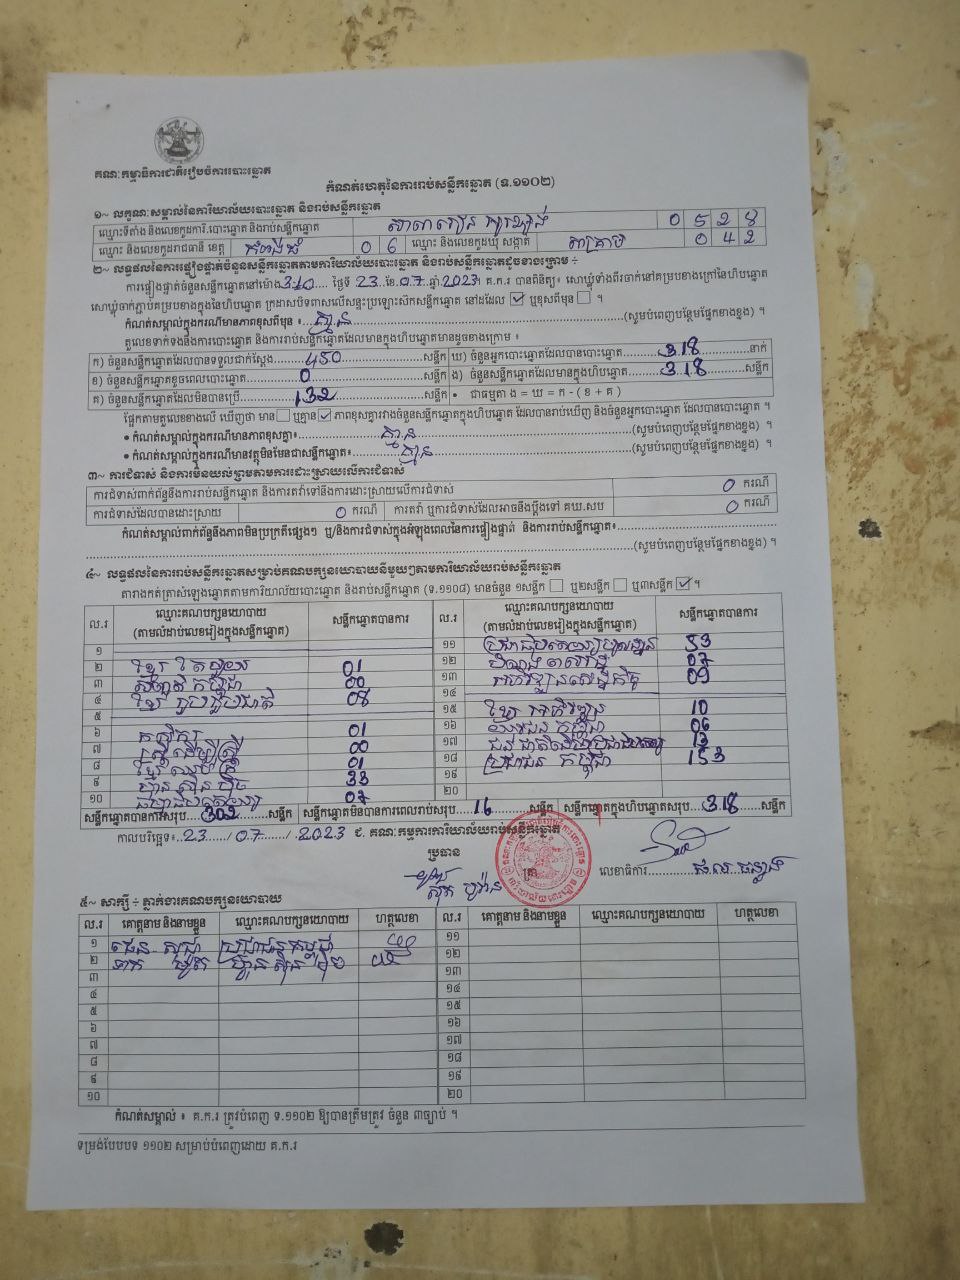 គណៈកម្មាធិការជាតិរៀបចំការបោះឆ្នោត
កំណត់ហេតុនៃការរាប់សន្លឹកឆ្នោត (ទ.១១០២)
១~ លក្ខណៈសម្គាល់នៃការិយាល័យបោះឆ្នោត និងរាប់សន្លឹកឆ្នោត
ឈ្មោះទីតាំង និងលេខកូដការិ.បោះឆ្នោត និងរាប់សន្លឹកឆ្នោត សាលារៀន 0 5 2 8
ឈ្មោះ និងលេខកូដរាជធានី ខេត្ត កំពង់ធំ 0 6 ឈ្មោះ និងលេខកូដឃុំ សង្កាត់ 0 4 2
២~ លទ្ធផលនៃការផ្ទៀងផ្ទាត់ចំនួនសន្លឹកឆ្នោតតាមការិយាល័យបោះឆ្នោត និងរាប់សន្លឹកឆ្នោតដូចខាងក្រោម ÷
ការផ្ទៀងផ្ទាត់ចំនួនសន្លឹកឆ្នោតនៅម៉ោង ថ្ងៃទី 23 ខែ 07 ឆ្នាំ 2023 ។ គ.ក.រ បានពិនិត្យ៖ សោឃ្លុំទាំងពីរចាក់នៅគម្របខាងក្រៅនៃហិបឆ្នោត
សោឃ្លុំចាក់ភ្ជាប់គម្របខាងក្នុងនៃហិបឆ្នោត ក្រដាសបិទពាសលើសន្ទះប្រឡោះសៀកសន្លឹកឆ្នោត នៅដដែល ☑ ឬខុសពីមុន ☐ ។
កំណត់សម្គាល់ក្នុងករណីមានភាពខុសពីមុន ៖ គ្មាន (សូមបំពេញបន្ថែមផ្នែកខាងខ្នង) ។
តួលេខទាក់ទងនឹងការបោះឆ្នោត និងការរាប់សន្លឹកឆ្នោតដែលមានក្នុងហិបឆ្នោតមានដូចខាងក្រោម ៖
ក) ចំនួនសន្លឹកឆ្នោតដែលបានទទួលជាក់ស្តែង 450 សន្លឹក ឃ) ចំនួនអ្នកបោះឆ្នោតដែលបានបោះឆ្នោត 318 នាក់
ខ) ចំនួនសន្លឹកឆ្នោតខូចពេលបោះឆ្នោត 0 សន្លឹក ង) ចំនួនសន្លឹកឆ្នោតដែលមានក្នុងហិបឆ្នោត 318 សន្លឹក
គ) ចំនួនសន្លឹកឆ្នោតដែលមិនបានប្រើ 132 សន្លឹក • ជាធម្មតា ង = ឃ = ក - ( ខ + គ )
ផ្អែកតាមតួលេខខាងលើ ឃើញថា មាន ☐ ឬគ្មាន ☑ ភាពខុសគ្នារវាងចំនួនសន្លឹកឆ្នោតក្នុងហិបឆ្នោត ដែលបានរាប់ឃើញ និងចំនួនអ្នកបោះឆ្នោត ដែលបានបោះឆ្នោត ។
• កំណត់សម្គាល់ក្នុងករណីមានភាពខុសគ្នា៖ គ្មាន (សូមបំពេញបន្ថែមផ្នែកខាងខ្នង) ។
• កំណត់សម្គាល់ក្នុងករណីមានវត្ថុមិនមែនជាសន្លឹកឆ្នោត៖ គ្មាន (សូមបំពេញបន្ថែមផ្នែកខាងខ្នង) ។
៣~ ការជំទាស់ និងការមិនយល់ព្រមតាមការដោះស្រាយលើការជំទាស់
ការជំទាស់ពាក់ព័ន្ធនឹងការរាប់សន្លឹកឆ្នោត និងការតវ៉ាទៅនឹងការដោះស្រាយលើការជំទាស់ 0 ករណី
ការជំទាស់ដែលបានដោះស្រាយ 0 ករណី ការតវ៉ា ឬការជំទាស់ដែលអាចនឹងប្តឹងទៅ គឃ.សប 0 ករណី
កំណត់សម្គាល់ពាក់ព័ន្ធនឹងភាពមិនប្រក្រតីផ្សេងៗ ឬ/និងការជំទាស់ក្នុងអំឡុងពេលនៃការផ្ទៀងផ្ទាត់ និងការរាប់សន្លឹកឆ្នោត៖
(សូមបំពេញបន្ថែមផ្នែកខាងខ្នង) ។
៤~ លទ្ធផលនៃការរាប់សន្លឹកឆ្នោតសម្រាប់គណបក្សនយោបាយនីមួយៗតាមការិយាល័យរាប់សន្លឹកឆ្នោត
តារាងកត់ត្រាសំឡេងឆ្នោតតាមការិយាល័យបោះឆ្នោត និងរាប់សន្លឹកឆ្នោត (ទ.១១០៨) មានចំនួន ១សន្លឹក ☐ ឬ២សន្លឹក ☐ ឬ៣សន្លឹក ☑ ។
ល.រ ឈ្មោះគណបក្សនយោបាយ (តាមលំដាប់លេខរៀងក្នុងសន្លឹកឆ្នោត) សន្លឹកឆ្នោតបានការ ល.រ ឈ្មោះគណបក្សនយោបាយ (តាមលំដាប់លេខរៀងក្នុងសន្លឹកឆ្នោត) សន្លឹកឆ្នោតបានការ
១ ១១ 53
២ ខ្មែរ 01 ១២ 07
៣ កម្ពុជា 00 ១៣ 09
៤ ខ្មែរ រួបរួមជាតិ 08 ១៤
៥ ១៥ ខ្មែរ អភិវឌ្ឍន៍ 10
៦ កសិករ 01 ១៦ យុវជន កម្ពុជា 06
៧ ស្ត្រីដើម្បីស្ត្រី 00 ១៧ 13
៨ ខ្មែរ ឈប់ក្រ 01 ១៨ ប្រជាជន កម្ពុជា 153
៩ ហ្វ៊ុនស៊ិនប៉ិច 33 ១៩
១០ 07 ២០
សន្លឹកឆ្នោតបានការសរុប 302 សន្លឹក សន្លឹកឆ្នោតមិនបានការពេលរាប់សរុប 16 សន្លឹក សន្លឹកឆ្នោតក្នុងហិបឆ្នោតសរុប 318 សន្លឹក
កាលបរិច្ឆេទ៖ 23 / 07 / 2023 ជ. គណៈកម្មការការិយាល័យរាប់សន្លឹកឆ្នោត
ប្រធាន
ត្រា លេខាធិការ
៥~ សាក្សី ÷ ភ្នាក់ងារគណបក្សនយោបាយ
ល.រ គោត្តនាម និងនាមខ្លួន ឈ្មោះគណបក្សនយោបាយ ហត្ថលេខា ល.រ គោត្តនាម និងនាមខ្លួន ឈ្មោះគណបក្សនយោបាយ ហត្ថលេខា
១ ប្រជាជនកម្ពុជា ១១
២ ហ្វ៊ុនស៊ិនប៉ិច ១២
៣ ១៣
៤ ១៤
៥ ១៥
៦ ១៦
៧ ១៧
៨ ១៨
៩ ១៩
១០ ២០
កំណត់សម្គាល់ ៖ គ.ក.រ ត្រូវបំពេញ ទ.១១០២ ឱ្យបានត្រឹមត្រូវ ចំនួន ៣ច្បាប់ ។
ទម្រង់បែបបទ ១១០២ សម្រាប់បំពេញដោយ គ.ក.រ